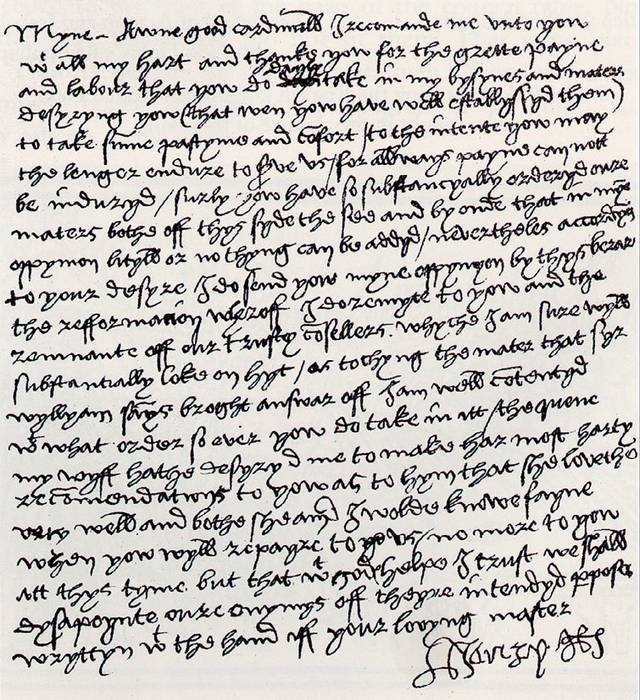 Myne awne good cardinall I recomande me unto yow
wt all my hart and thanke yow for the grette payne
and labour that yow do dayly take in my bysynes and maters
desyryng yow (that wen yow have well establyssyd them)
to take summe pastyme and cōfort / to the intente yow may
the lenger endure to serve us / for allways payne can nott
be induryd / surly yow have so substancyally orderyd oure
maters bothe off thys syde the see and byonde that in myne
oppynion lityll or no thyng can be addyd / nevertheles accordyng
to your desyre I do send yow myne oppynyon by thys berar
the refformacion wheroff I do remytte to yow and the
remnante off our trusty cōsellers whyche I am sure wyll
substantially loke on hyt / as tochyng the mater that syr
wyllyam says broght answar off I am well cōtentyd
wt what order so ever yow do take in itt / the quene
my wyff hathe desyryd me to make har most harty
recōmendations to yow as to hym that she lovethe
very well and bothe she and I wolde knowe fayne
when yow wyll repayre to us / no more to yow
att thys tyme but that wt god helpe I trust we shall
dysapoynte oure enymys off theyre intendyd purpose
wryttyn wt the hand off your lovyng master
Henry